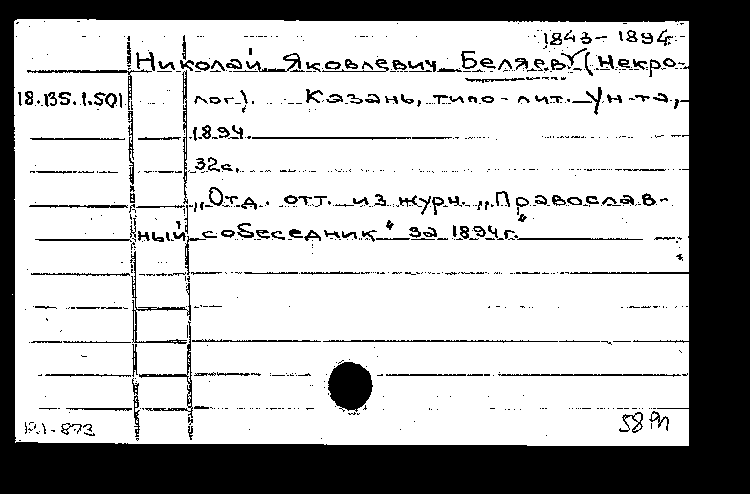 1843-1894
Николай Яковлевич Беляев (Некро-
18.135.1.501 лог). Казань, типо-лит. Ун-та,
1894.
32с.
„Отд. отт. из журн. „Православ-
ный собеседник“ за 1894г.“
58